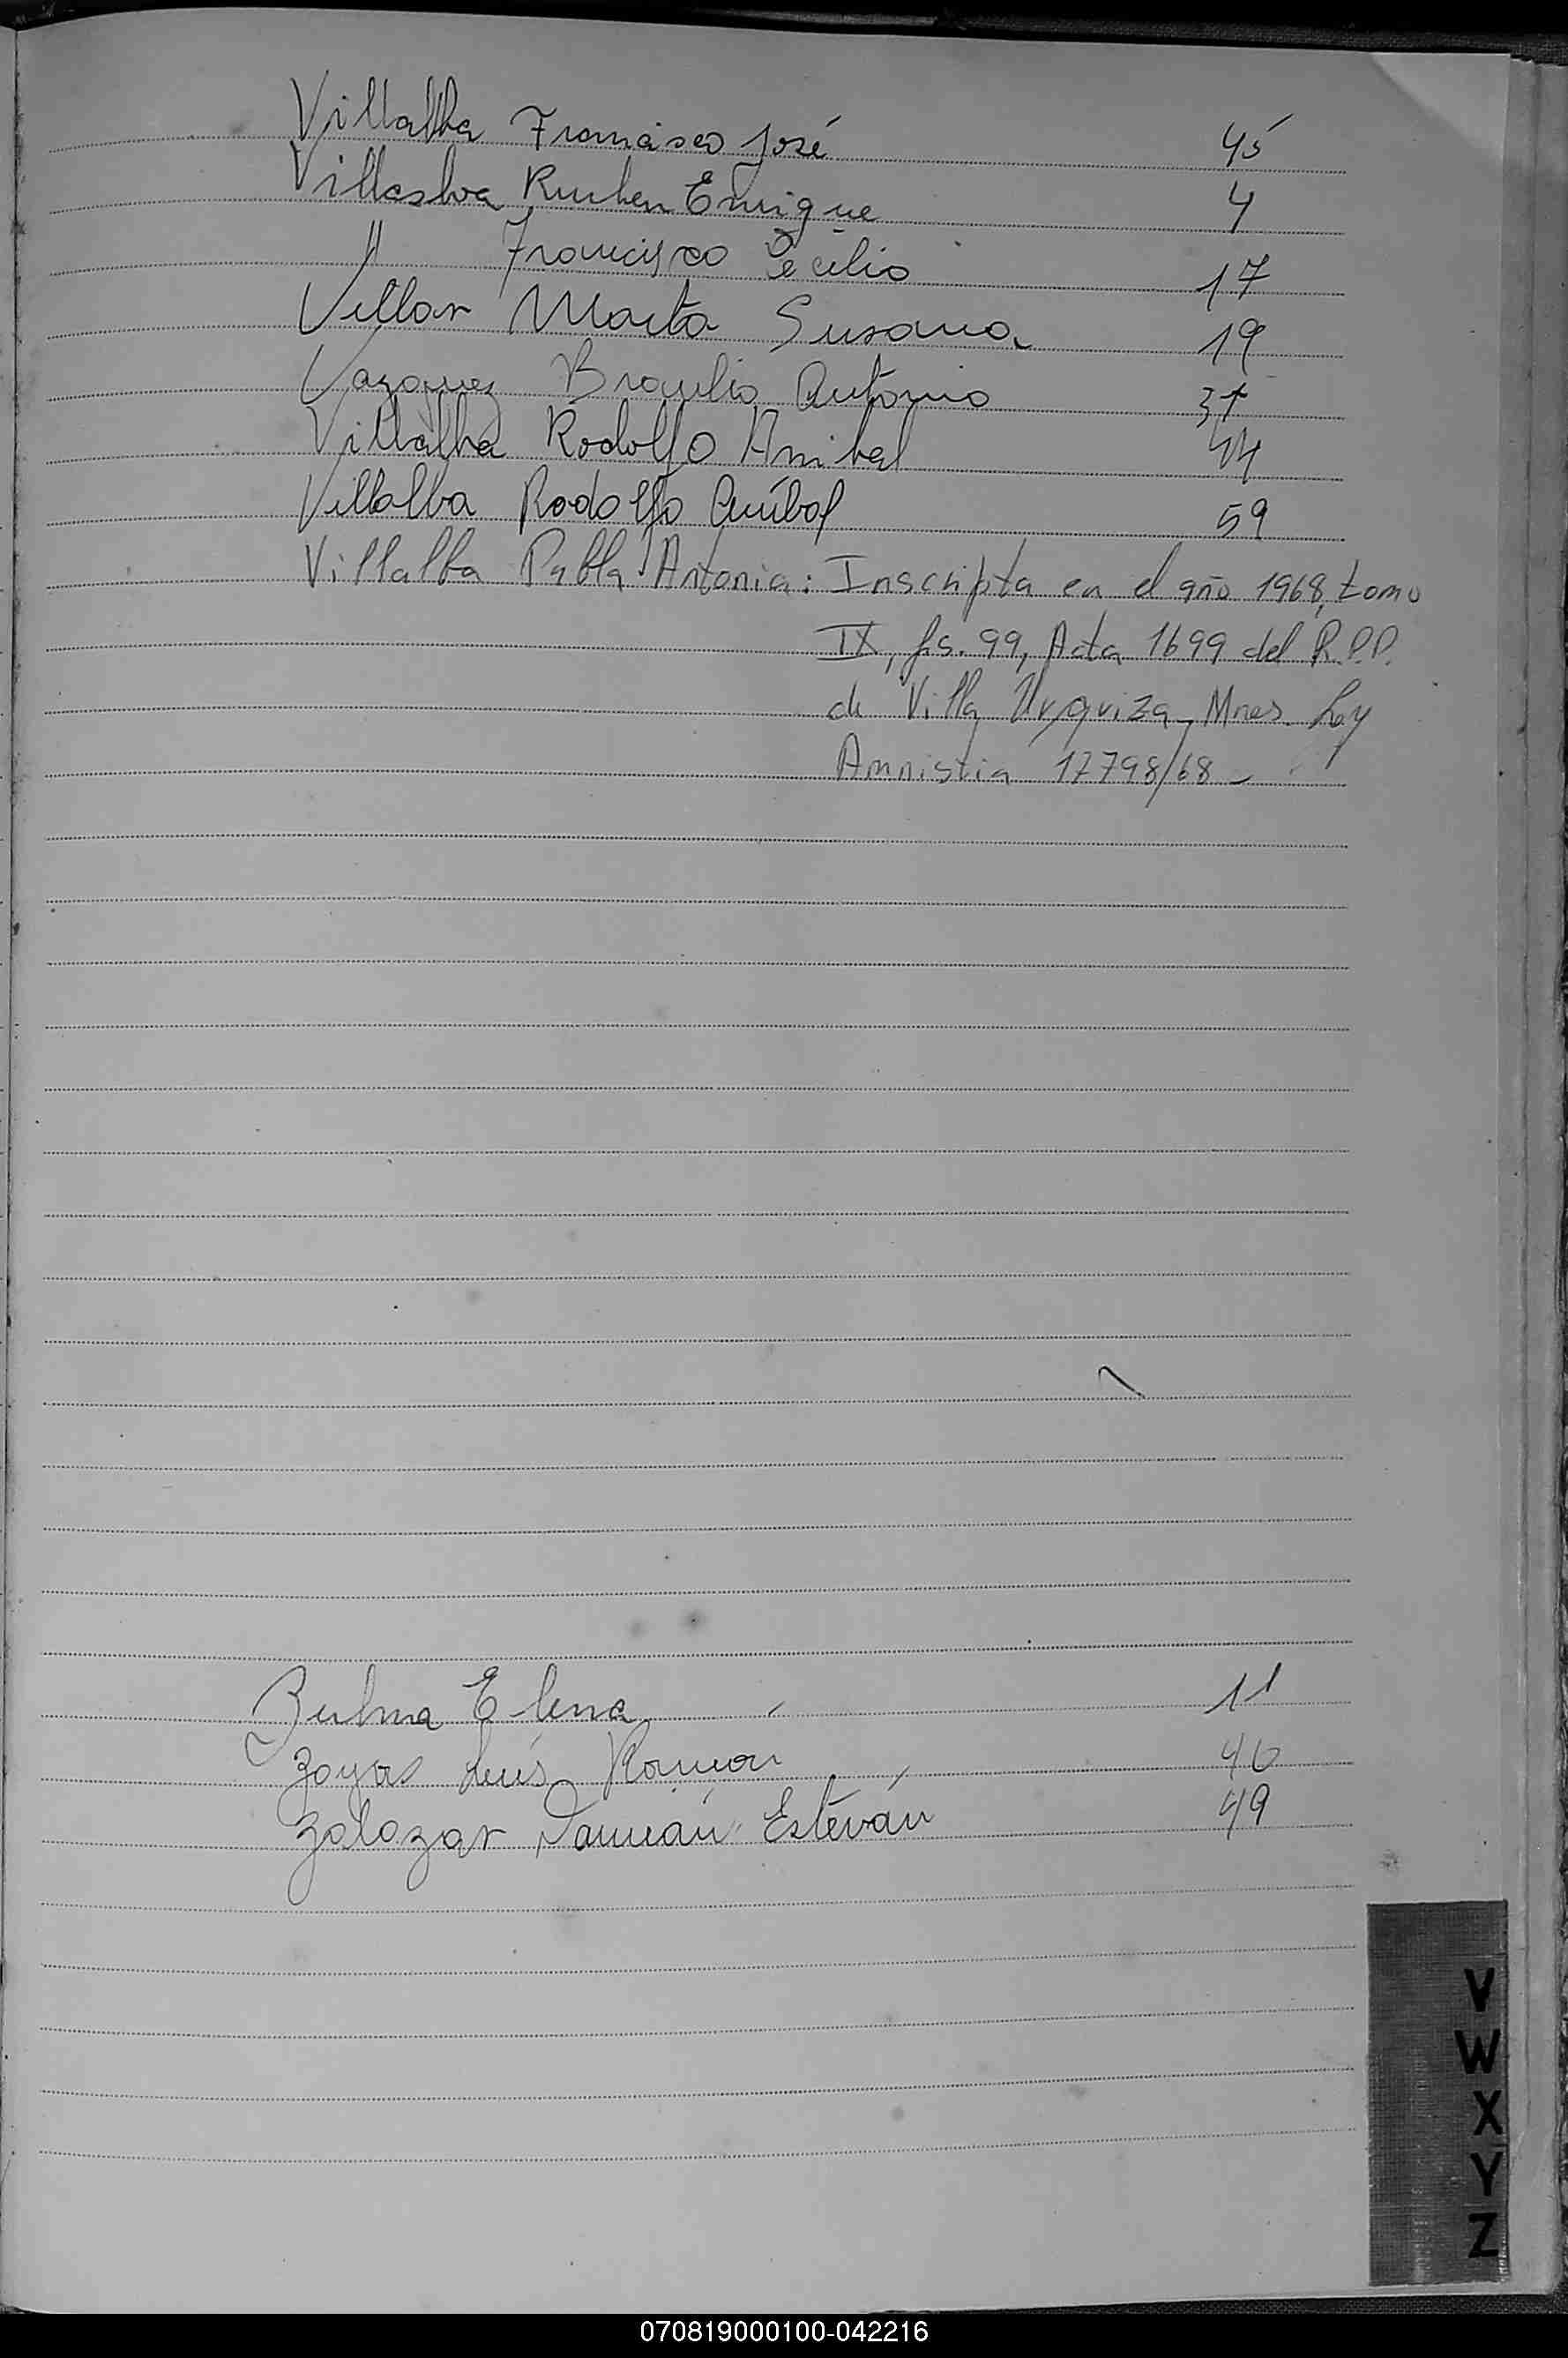 Villalba Francisco José 45
Villalba Ruben Enrique 4
" Francisco Cecilio 17
Villar Marta Susana 19
Vazquez Braulio Antonio 37
Villalba Rodolfo Anibal 44
Villalba Rodolfo Aníbal 59
Villalba Pabla Antonia: Inscripta en el año 1968, tomo
IX, fs. 99, Acta 1699 del R.P.P.
de Villa Urquiza, Mnes. Ley
Amnistia 17798/68-
Zulma Elena 11
Zoyas Luis Ramon 40
Zalazar Damián Estéván 49
V
W
X
Y
Z
070819000100-042216